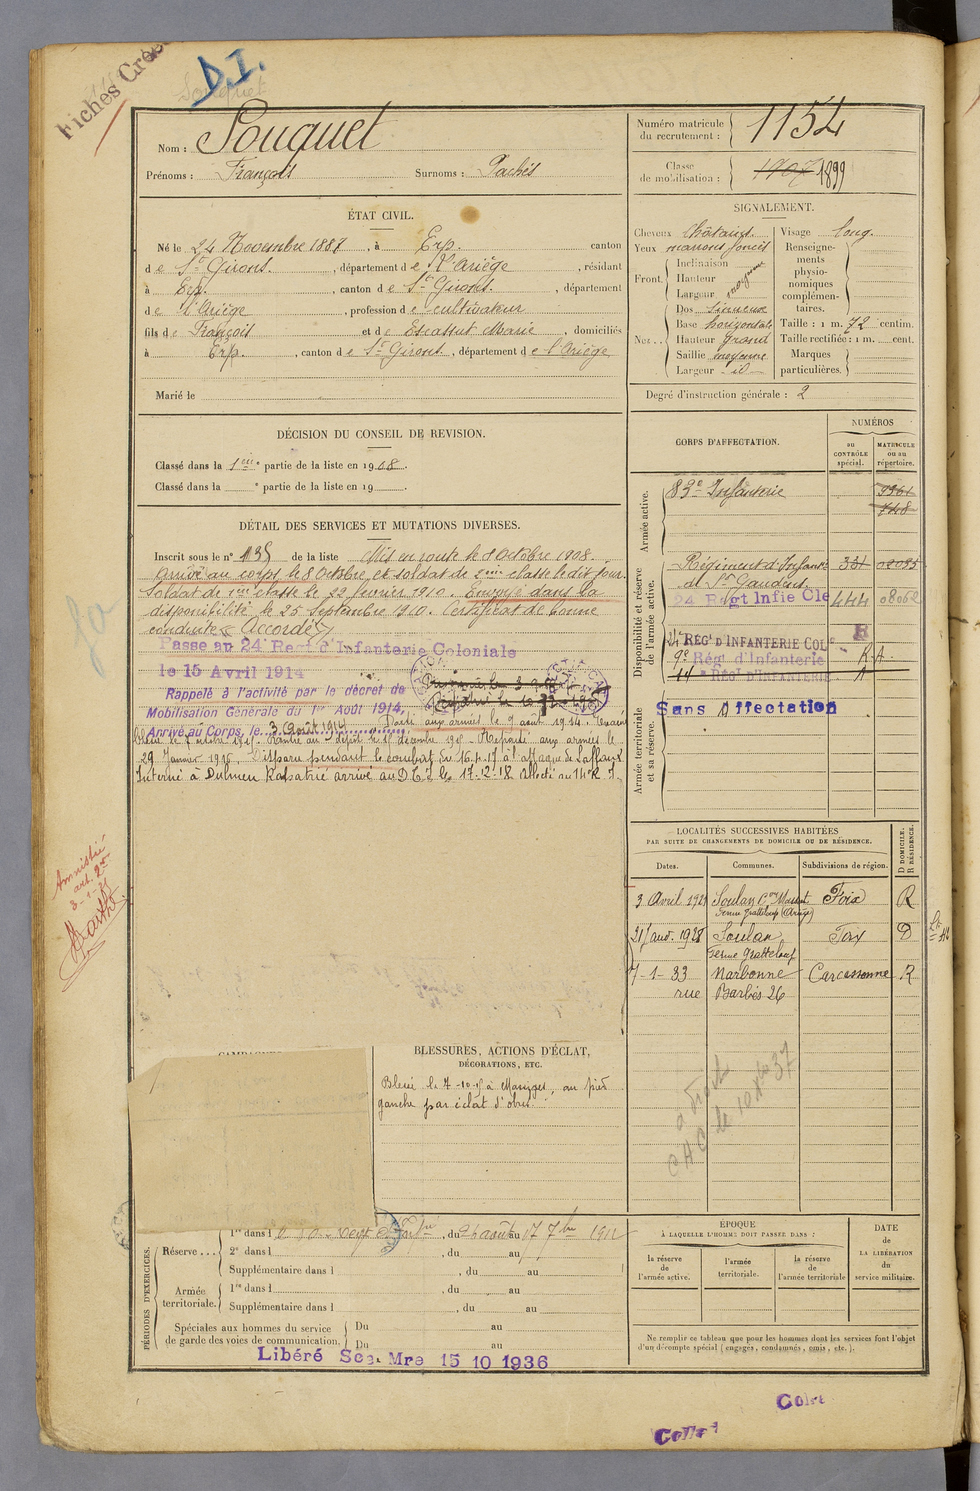 Fiches
D.I.
Souquet
Nom : Souquet
Prénoms : François Surnoms : Pachés
Numéro matricule du recrutement : 1154
Classe de mobilisation : 1907 1899
ÉTAT CIVIL.
Né le 24 Novembre 1887, à Erp. canton
de St Girons., département de l'Ariège, résidant
à Erp., canton de St Girons., département
de l'Ariège, profession de cultivateur
fils de François et de Escassut Marie, domiciliés
à Erp., canton de St Girons., département de l'Ariège
Marié le
SIGNALEMENT.
Cheveux châtains. Visage long.
Yeux marrons foncés
Front. Inclinaison
Hauteur moyenne
Largeur
Nez .. Dos sinueux
Base horizontal
Hauteur grand
Saillie moyenne
Largeur id
Renseignements physionomiques complémentaires.
Taille : 1 m. 72 centim.
Taille rectifiée : 1 m. cent.
Marques particulières.
Degré d'instruction générale : 2
DÉCISION DU CONSEIL DE REVISION.
Classé dans la 1ère partie de la liste en 1908.
Classé dans la e partie de la liste en 19 .
DÉTAIL DES SERVICES ET MUTATIONS DIVERSES.
Inscrit sous le n° 135 de la liste Mis en route le 8 Octobre 1908.
Arrivé au corps le 8 Octobre, et soldat de 2ème classe le dit jour.
Soldat de 1ère classe le 22 février 1910. Envoyé dans la
disponibilité le 25 Septembre 1910. Certificat de bonne
conduite « Accordé »
Passe au 24 Regt d'Infanterie Coloniale
le 15 Avril 1914
Rappelé à l'activité par le décret de
Mobilisation Générale du 1er Août 1914,
Arrivé au Corps, le 3 août 1914 Parti aux armées le 9 août 1914.
Blessé le 7 octobre 1915. Rentré au dépôt le 15 décembre 1915. Reparti aux armées le
29 Janvier 1916. Disparu pendant le combat du 16-4-17 à l'attaque de Laffaux
Interné à Dulmen Rapatrié arrivé au D.C.I. le 17-12-18 Affecté au 14e R.I.
CORPS D'AFFECTATION.
NUMÉROS
au CONTRÔLE spécial.
MATRICULE ou au répertoire.
Armée active.
83e Infanterie 9361
748
Disponibilité et réserve de l'armée active.
Régiment d'Infanterie 331 02035
de St Gaudens.
24 Régt Infie Cle 444 08062
24 RÉGt D'INFANTERIE COL
9e Régt d'Infanterie K.A.
14e RÉGt D'INFANTERIE A
Armée territoriale et sa réserve.
Sans Affectation
LOCALITÉS SUCCESSIVES HABITÉES
PAR SUITE DE CHANGEMENTS DE DOMICILE OU DE RÉSIDENCE.
Dates. Communes. Subdivisions de région. D DOMICILE. R RÉSIDENCE.
3 Avril 1921 Soulan Con Massat Foix R
21 Janv. 1928 Soulan Foix D
Ferme Gratteloup
7-1-33 Narbonne Carcassonne R
rue Barbès 26
Amnistié
art. 2
3-1-25
BLESSURES, ACTIONS D'ÉCLAT,
DÉCORATIONS, ETC.
Blessé le 7-10-15 à Massiges, au pied
gauche par éclat d'obus.
PÉRIODES D'EXERCICES.
Réserve ... 1re dans l , du 26 août au 17 7bre 1912
2e dans l , du au
Supplémentaire dans l , du au
Armée territoriale. 1re dans l , du au
Supplémentaire dans l , du au
Spéciales aux hommes du service de garde des voies de communication. Du au
Du au
Libéré Sce Mre 15 10 1936
ÉPOQUE
À LAQUELLE L'HOMME DOIT PASSER DANS :
la réserve de l'armée active.
l'armée territoriale.
la réserve de l'armée territoriale
DATE de LA LIBÉRATION du service militaire.
Ne remplir ce tableau que pour les hommes dont les services font l'objet
d'un décompte spécial (engagés, condamnés, omis, etc.).